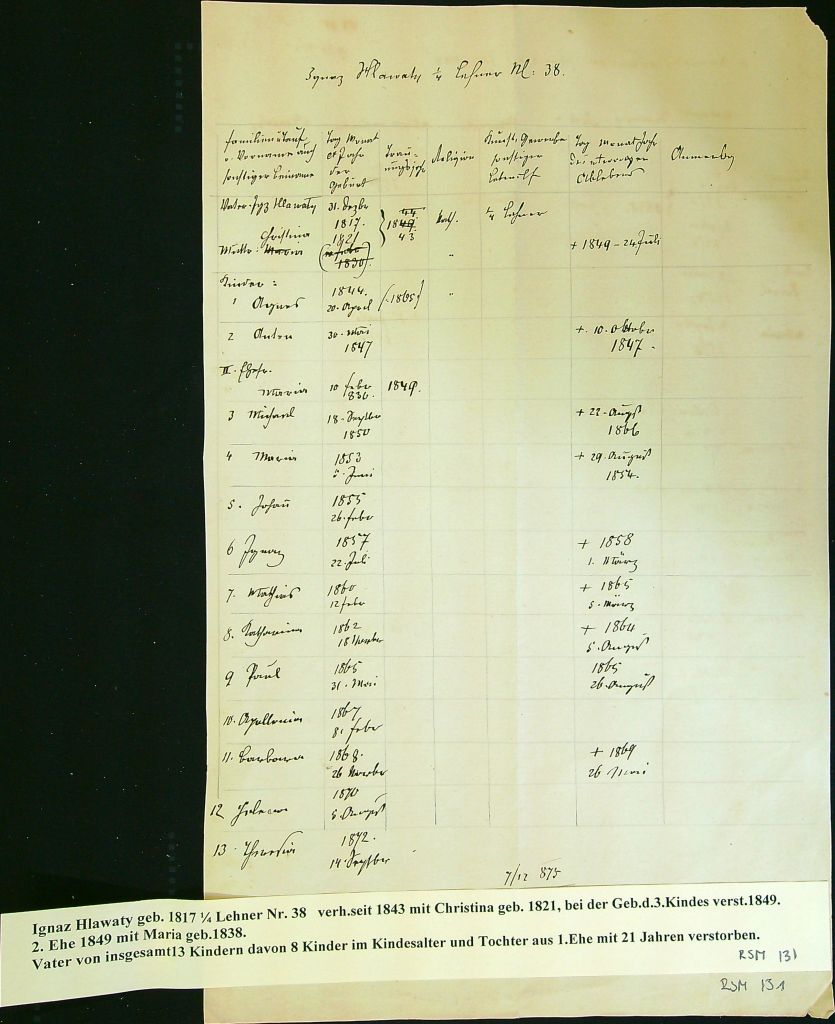 Ignaz Hlawaty ¼ Lehner Nl: 38.
Familien u Tauf
o. Vorname auch
sonstiger Beiname
Tag Monat
et Jahr
der
Geburt
Trau-
ungsjahr
Religion
Kunst. Gewerbe
sonstiger
Tag Monat Jahr
des etwaigen
Ablebens
Anmerkg
Vater Ignz Hlawaty
31. Dezbr
1817.
44
1849.
43
Kath.
¼ Lehner
Christina
Mutter Maria
1821
1830
"
+ 1849 - 24 Juli
Kinder:
1 Agnes
1844.
20. April
(1865)
"
2 Anton
30. Mai
1847
+. 10. Oktober
1847.
II. Ehefr.
Maria
10 Febr
830.
1849.
3 Michael
18. Septbr
1850
+ 22. Augst
1866
4 Maria
1853
5. Juni
+ 29. August
1854.
5. Johan̄
1855
26. Febr
6 Ignaz
1857
22. Juli
+ 1858
1. März
7. Mathias
1860
12 Febr
+ 1865
5. März
8. Katharina
1862
18 Novbr
+ 1864
5. August
9 Paul
1865
31. Mai
1865
26. August
10. Apollonia
1867
8. Febr
11. Barbara
1868.
26 Novbr
+ 1869
26 Mai
12 Helena
1870
5. August
13 Theresia
1872.
14. Septbr
7/12 875
Ignaz Hlawaty geb. 1817 ¼ Lehner Nr. 38 verh.seit 1843 mit Christina geb. 1821, bei der Geb.d.3.Kindes verst.1849.
2. Ehe 1849 mit Maria geb.1838.
Vater von insgesamt13 Kindern davon 8 Kinder im Kindesalter und Tochter aus 1.Ehe mit 21 Jahren verstorben.
RSM 131
RSM 131